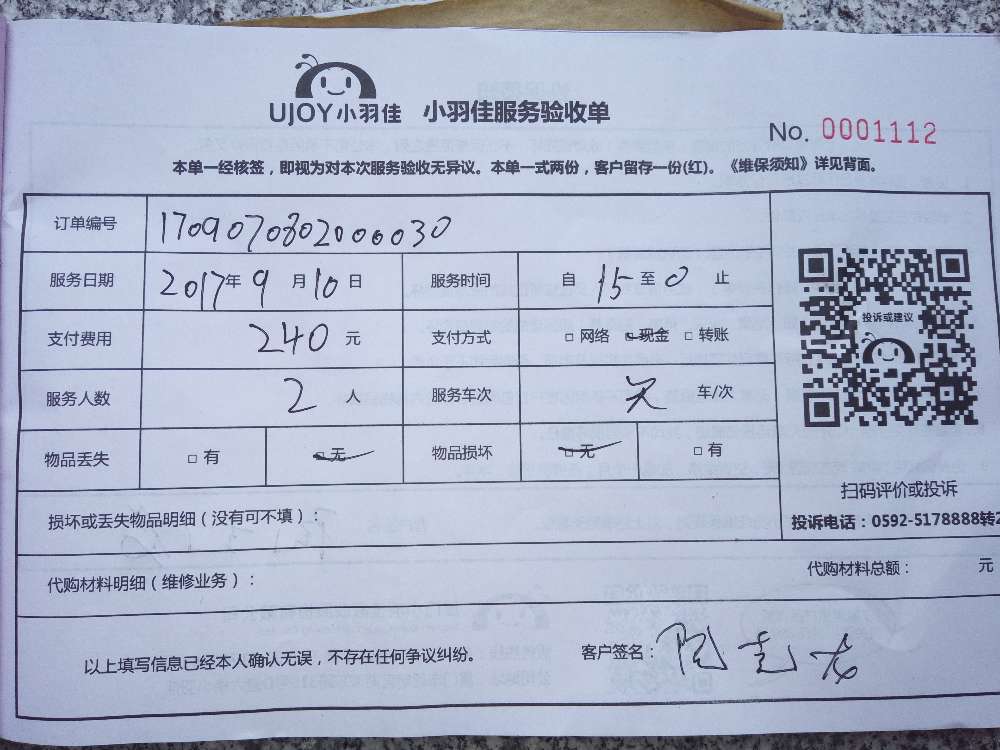 UJOY小羽佳 小羽佳服务验收单
No. 0001112
本单一经核签，即视为对本次服务验收无异议。本单一式两份，客户留存一份(红)。《维保须知》详见背面。
订单编号 1709070802000030
服务日期 2017年9月10日 服务时间 自15至0止
支付费用 240元 支付方式 □ 网络 □ 现金 □ 转账
投诉或建议
服务人数 2人 服务车次 车/次
物品丢失 □ 有 □ 无 物品损坏 □ 无 □ 有
扫码评价或投诉
损坏或丢失物品明细（没有可不填）：
投诉电话：0592-5178888转2
代购材料明细（维修业务）： 代购材料总额： 元
以上填写信息已经本人确认无误，不存在任何争议纠纷。 客户签名：